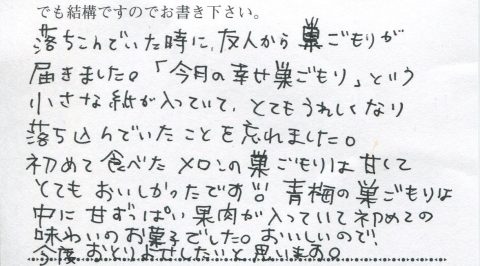 でも結構ですのでお書き下さい。
落ちこんでいた時に、友人から 巣ごもりが
届きました。「今月の幸せ巣ごもり」という
小さな紙が入っていて、とてもうれしくなり
落ち込んでいたことを忘れました。
初めて食べた メロンの巣ごもりは 甘くて
とても おいしかったです!! 青梅の巣ごもりは
中に 甘ずっぱい 果肉が入っていて初めての
味わいのお菓子でした。おいしいので、
今度 おとりよせしたいと思います。